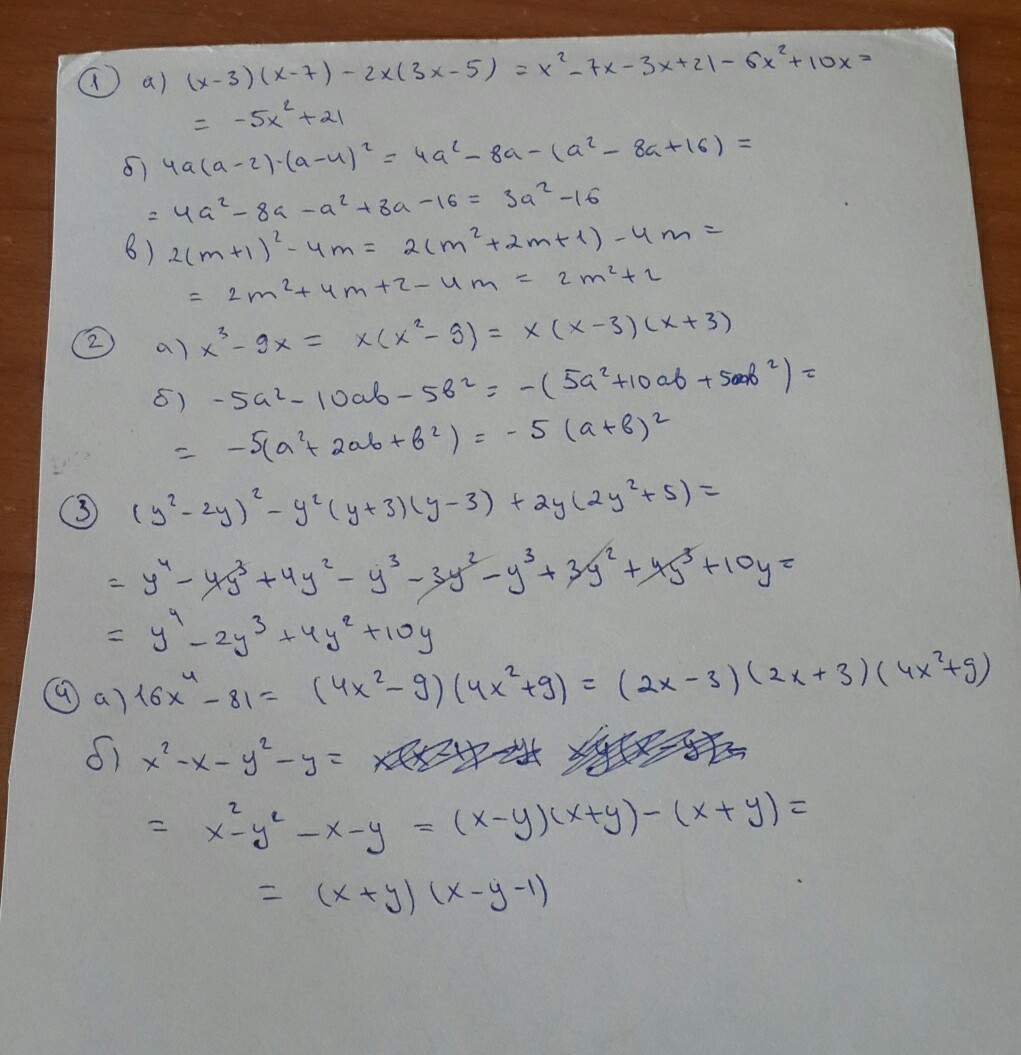 ① а) (x-3)(x-7) - 2x(3x-5) = x² - 7x - 3x + 21 - 6x² + 10x =
= -5x² + 21
б) 4a(a-2)-(a-4)² = 4a² - 8a - (a² - 8a + 16) =
= 4a² - 8a - a² + 8a - 16 = 3a² - 16
в) 2(m+1)² - 4m = 2(m² + 2m + 1) - 4m =
= 2m² + 4m + 2 - 4m = 2m² + 2
② а) x³ - 9x = x(x² - 9) = x(x-3)(x+3)
б) -5a² - 10ab - 5b² = -(5a² + 10ab + 5b²) =
= -5(a² + 2ab + b²) = -5(a+b)²
③ (y² - 2y)² - y²(y+3)(y-3) + 2y(2y² + 5) =
= y⁴ - 4y³ + 4y² - y³ - 3y² - y³ + 3y² + 4y³ + 10y =
= y⁴ - 2y³ + 4y² + 10y
④ а) 16x⁴ - 81 = (4x² - 9)(4x² + 9) = (2x-3)(2x+3)(4x² + 9)
б) x² - x - y² - y =
= x² - y² - x - y = (x-y)(x+y) - (x+y) =
= (x+y)(x-y-1)